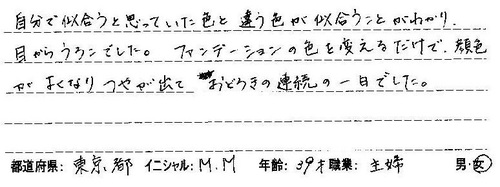 自分で似合うと思っていた色と違う色が似合うことがわかり、
目からうろこでした。ファンデーションの色を変えるだけで、顔色
がよくなりつやが出て おどろきの連続の一日でした。
都道府県: 東京都 イニシャル: M.M 年齢: 39才 職業: 主婦 男・女